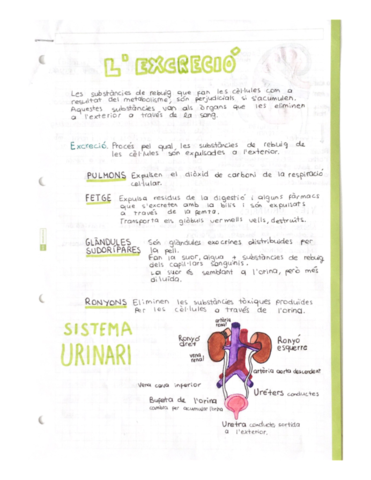 L'EXCRECIÓ
Les substàncies de rebuig que fan les cèl·lules com a
resultat del metabolisme, són perjudicials si s'acumulen.
Aquestes substàncies van als òrgans que les eliminen
a l'exterior a través de la sang.
Excreció. Procés pel qual les substàncies de rebuig de
les cèl·lules són expulsades a l'exterior.
PULMONS Expulsen el diòxid de carboni de la respiració
cel·lular.
FETGE Expulsa residus de la digestió i alguns fàrmacs
que s'excreten amb la bilis i són expulsats
a través de la femta.
Transporta els glòbuls vermells vells, destruïts.
GLÀNDULES
SUDORÍPARES
Són glàndules exocrines distribuïdes per
la pell.
Fan la suor, aigua + substàncies de rebuig
dels capil·lars sanguinis.
La suor és semblant a l'orina, però més
diluïda.
RONYONS Eliminen les substàncies tòxiques produïdes
per les cèl·lules a través de l'orina.
SISTEMA
URINARI
artèria
renal
Ronyó
dret
vena
renal
Ronyó
esquerre
artèria aorta descendent
Vena cava inferior
Urèters conductes
Bufeta de l'orina
per acumular l'orina
Uretra conducte sortida
a l'exterior.